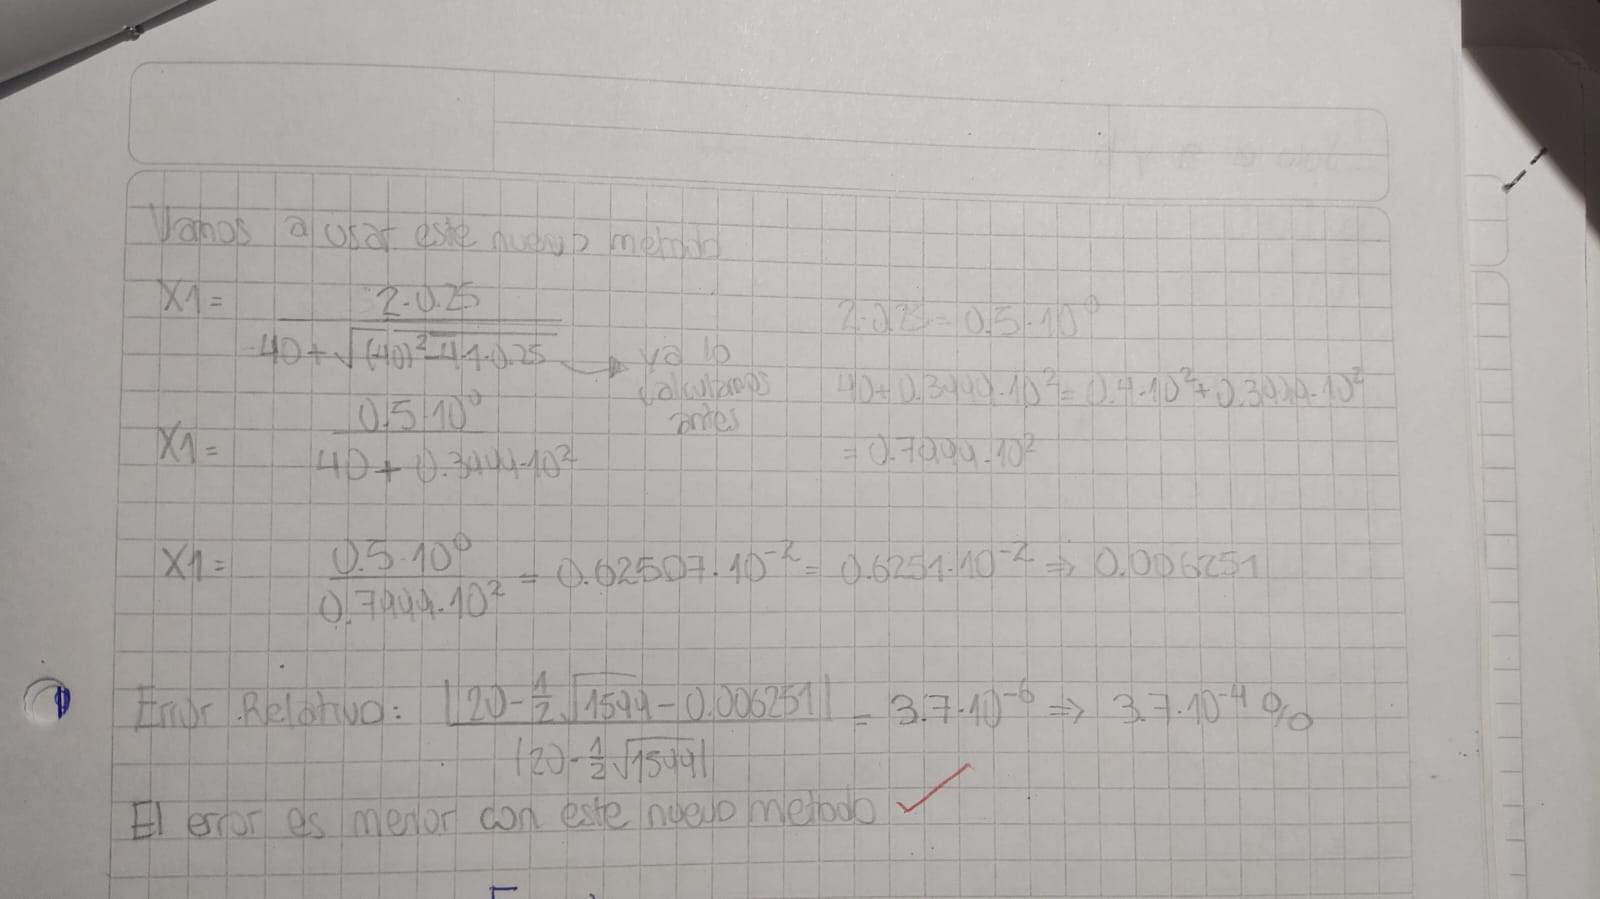 Vamos a usar este nuevo metodo
X1 = 2·0.25 / 40+√((-40)²-4·1·0.25) → ya lo calculamos antes
2·0.25 = 0.5·10⁰
40+0.3999·10² = 0.4·10²+0.3999·10²
= 0.7999·10²
X1 = 0.5·10⁰ / 40+0.3999·10²
X1 = 0.5·10⁰ / 0.7999·10² = 0.62507·10⁻² = 0.6251·10⁻² ⇒ 0.006251
Error Relativo: |20-½√1599-0.006251| / |20-½√1599| = 3.7·10⁻⁶ ⇒ 3.7·10⁻⁴%
El error es menor con este nuevo metodo ✓